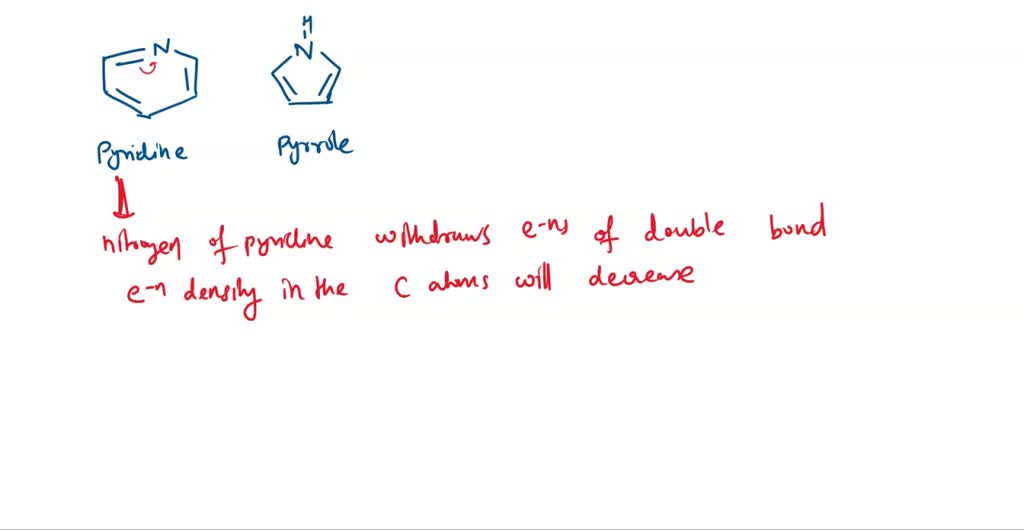 N
H
N
Pyridine
Pyrrole
nitrogen of pyridine withdraws e-ns of double bond
e-n density in the C atoms will decrease